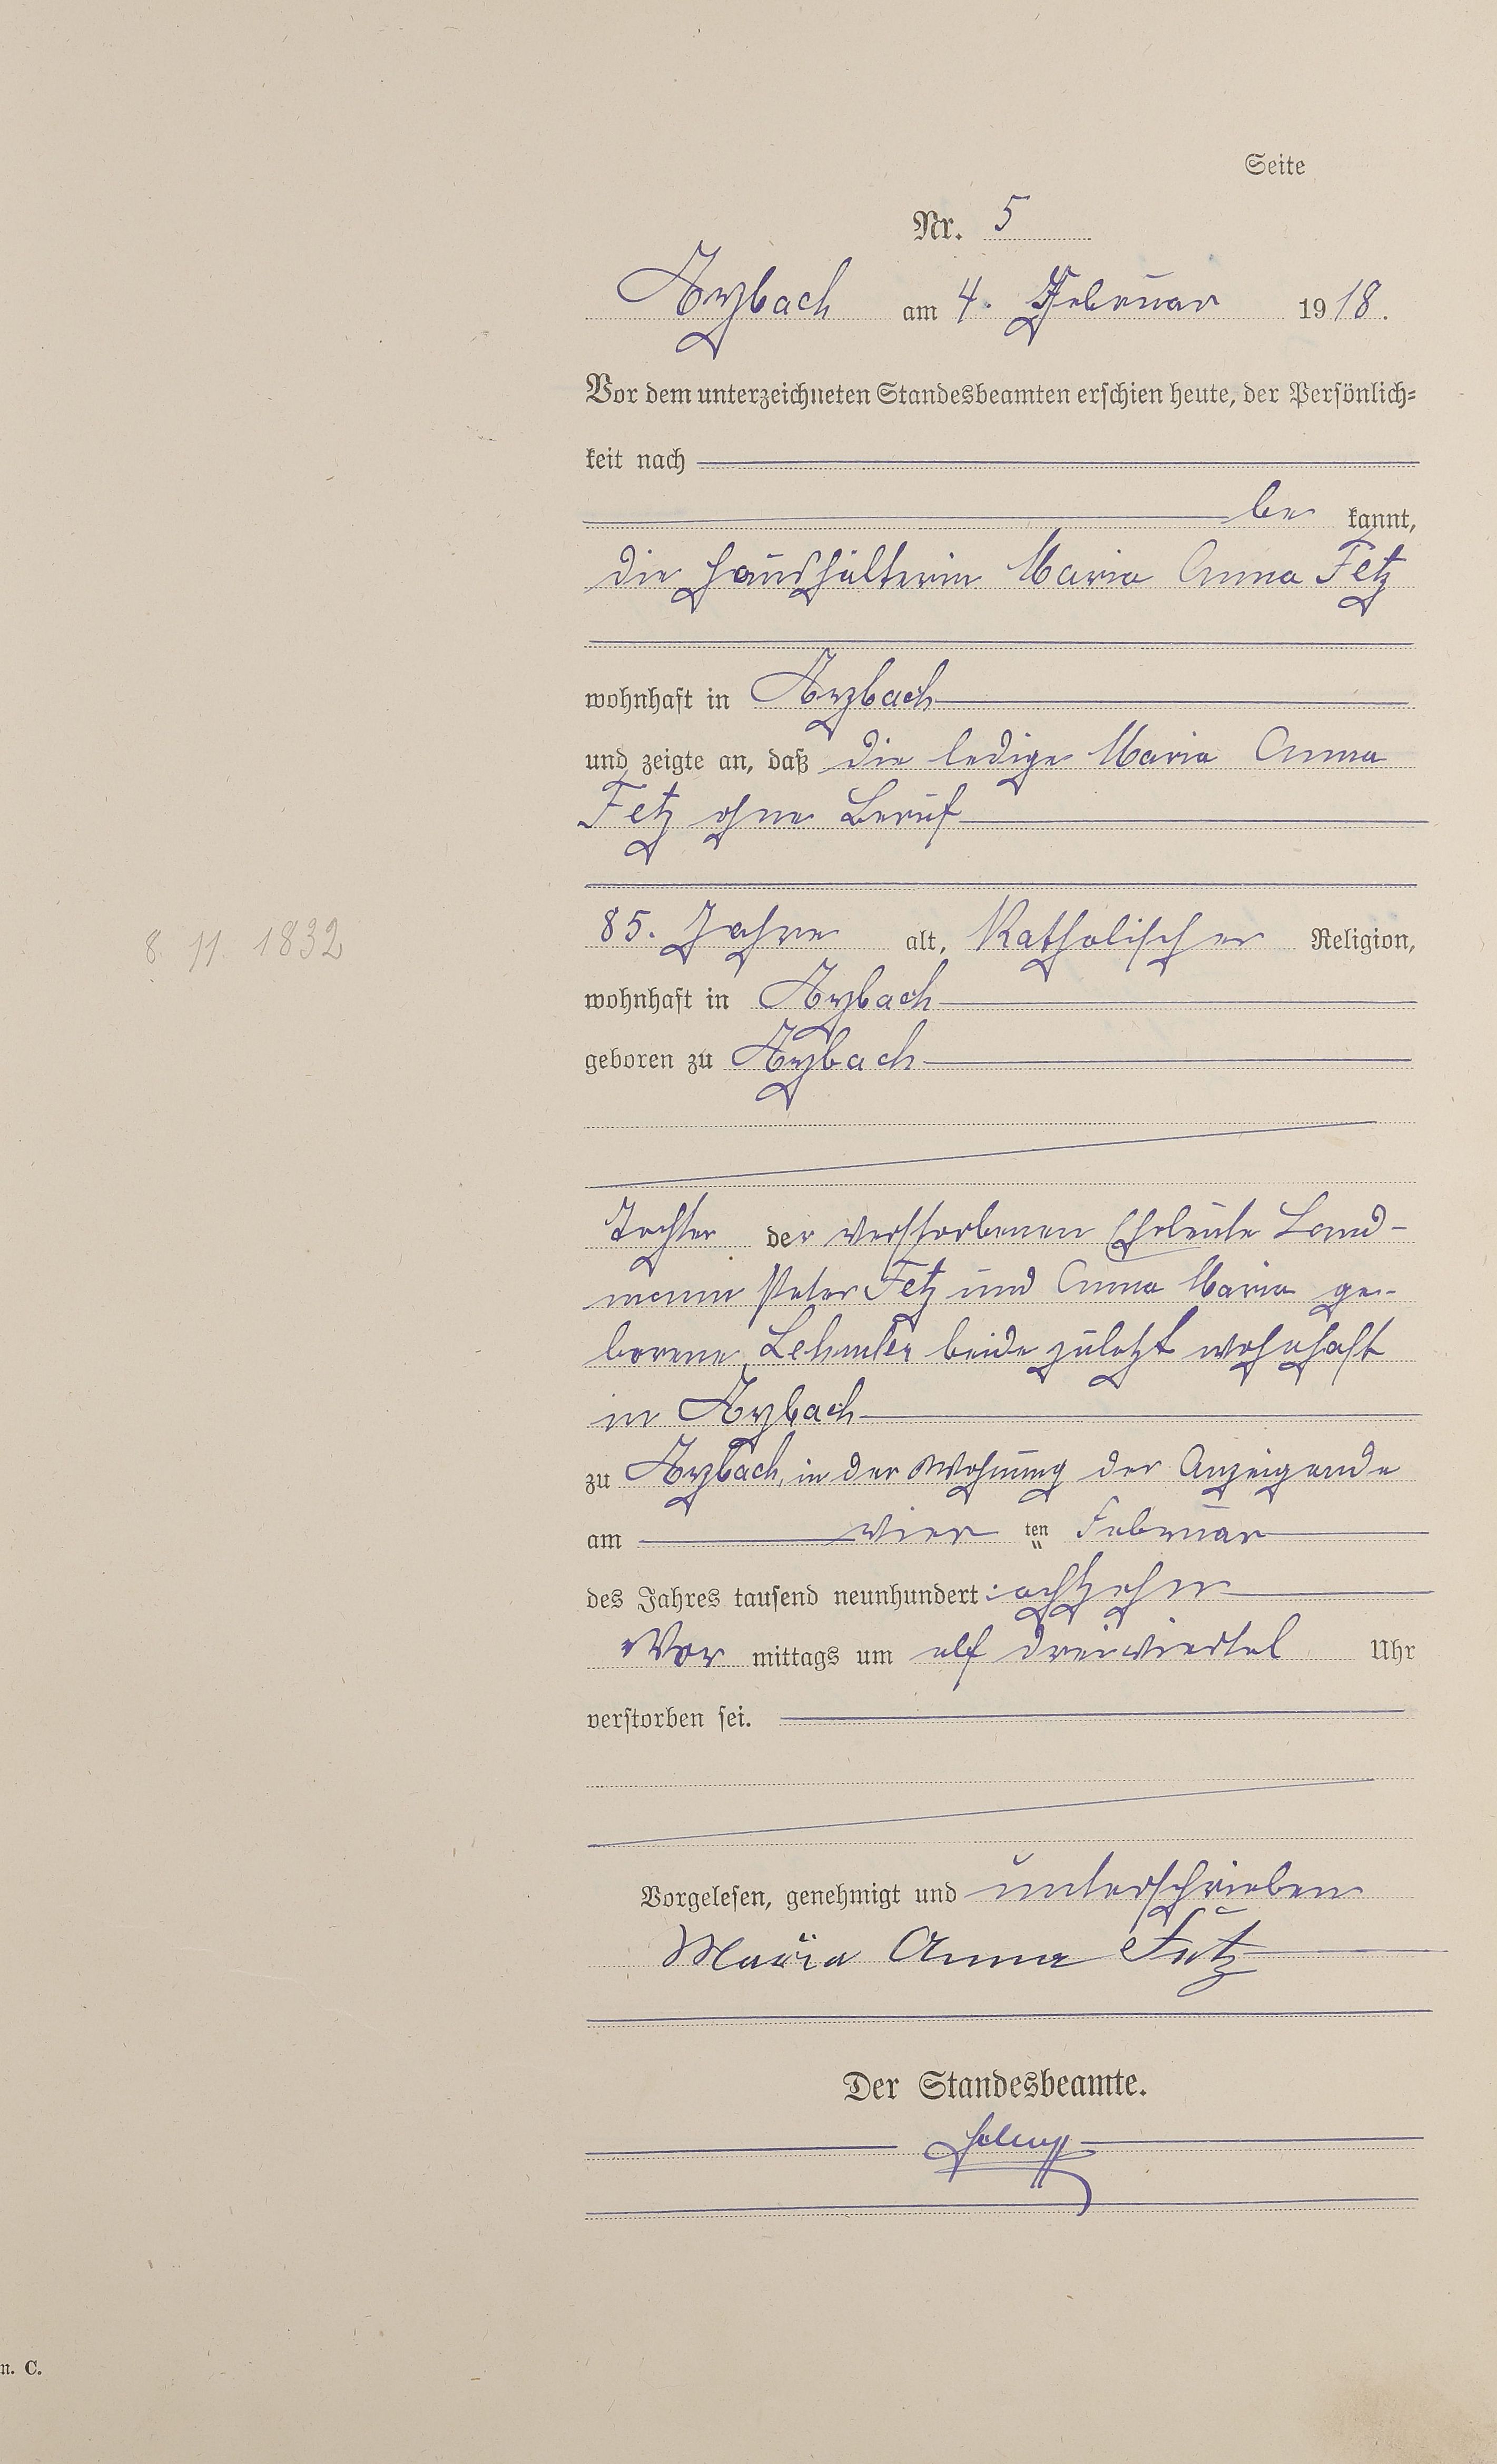 Seite
Nr. 5
Arzbach am 4. Februar 1918.
Vor dem unterzeichneten Standesbeamten erschien heute, der Persönlich=
keit nach
be kannt,
die Haushälterin Maria Anna Fetz
wohnhaft in Arzbach
und zeigte an, daß die ledige Maria Anna
Fetz ohne Beruf
8 11 1832
85. Jahre alt, Katholischer Religion,
wohnhaft in Arzbach
geboren zu Arzbach
Tochter der verstorbenen Eheleute Land-
mann Peter Fetz und Anna Maria ge-
borene beide zuletzt wohnhaft
in Arzbach
zu Arzbach, in der Wohnung der Anzeigende
am vier ten Februar
des Jahres tausend neunhundert achtzehn
Vor mittags um elf dreiviertel Uhr
verstorben sei.
Vorgelesen, genehmigt und unterschrieben
Maria Anna Fetz
Der Standesbeamte.
n. C.